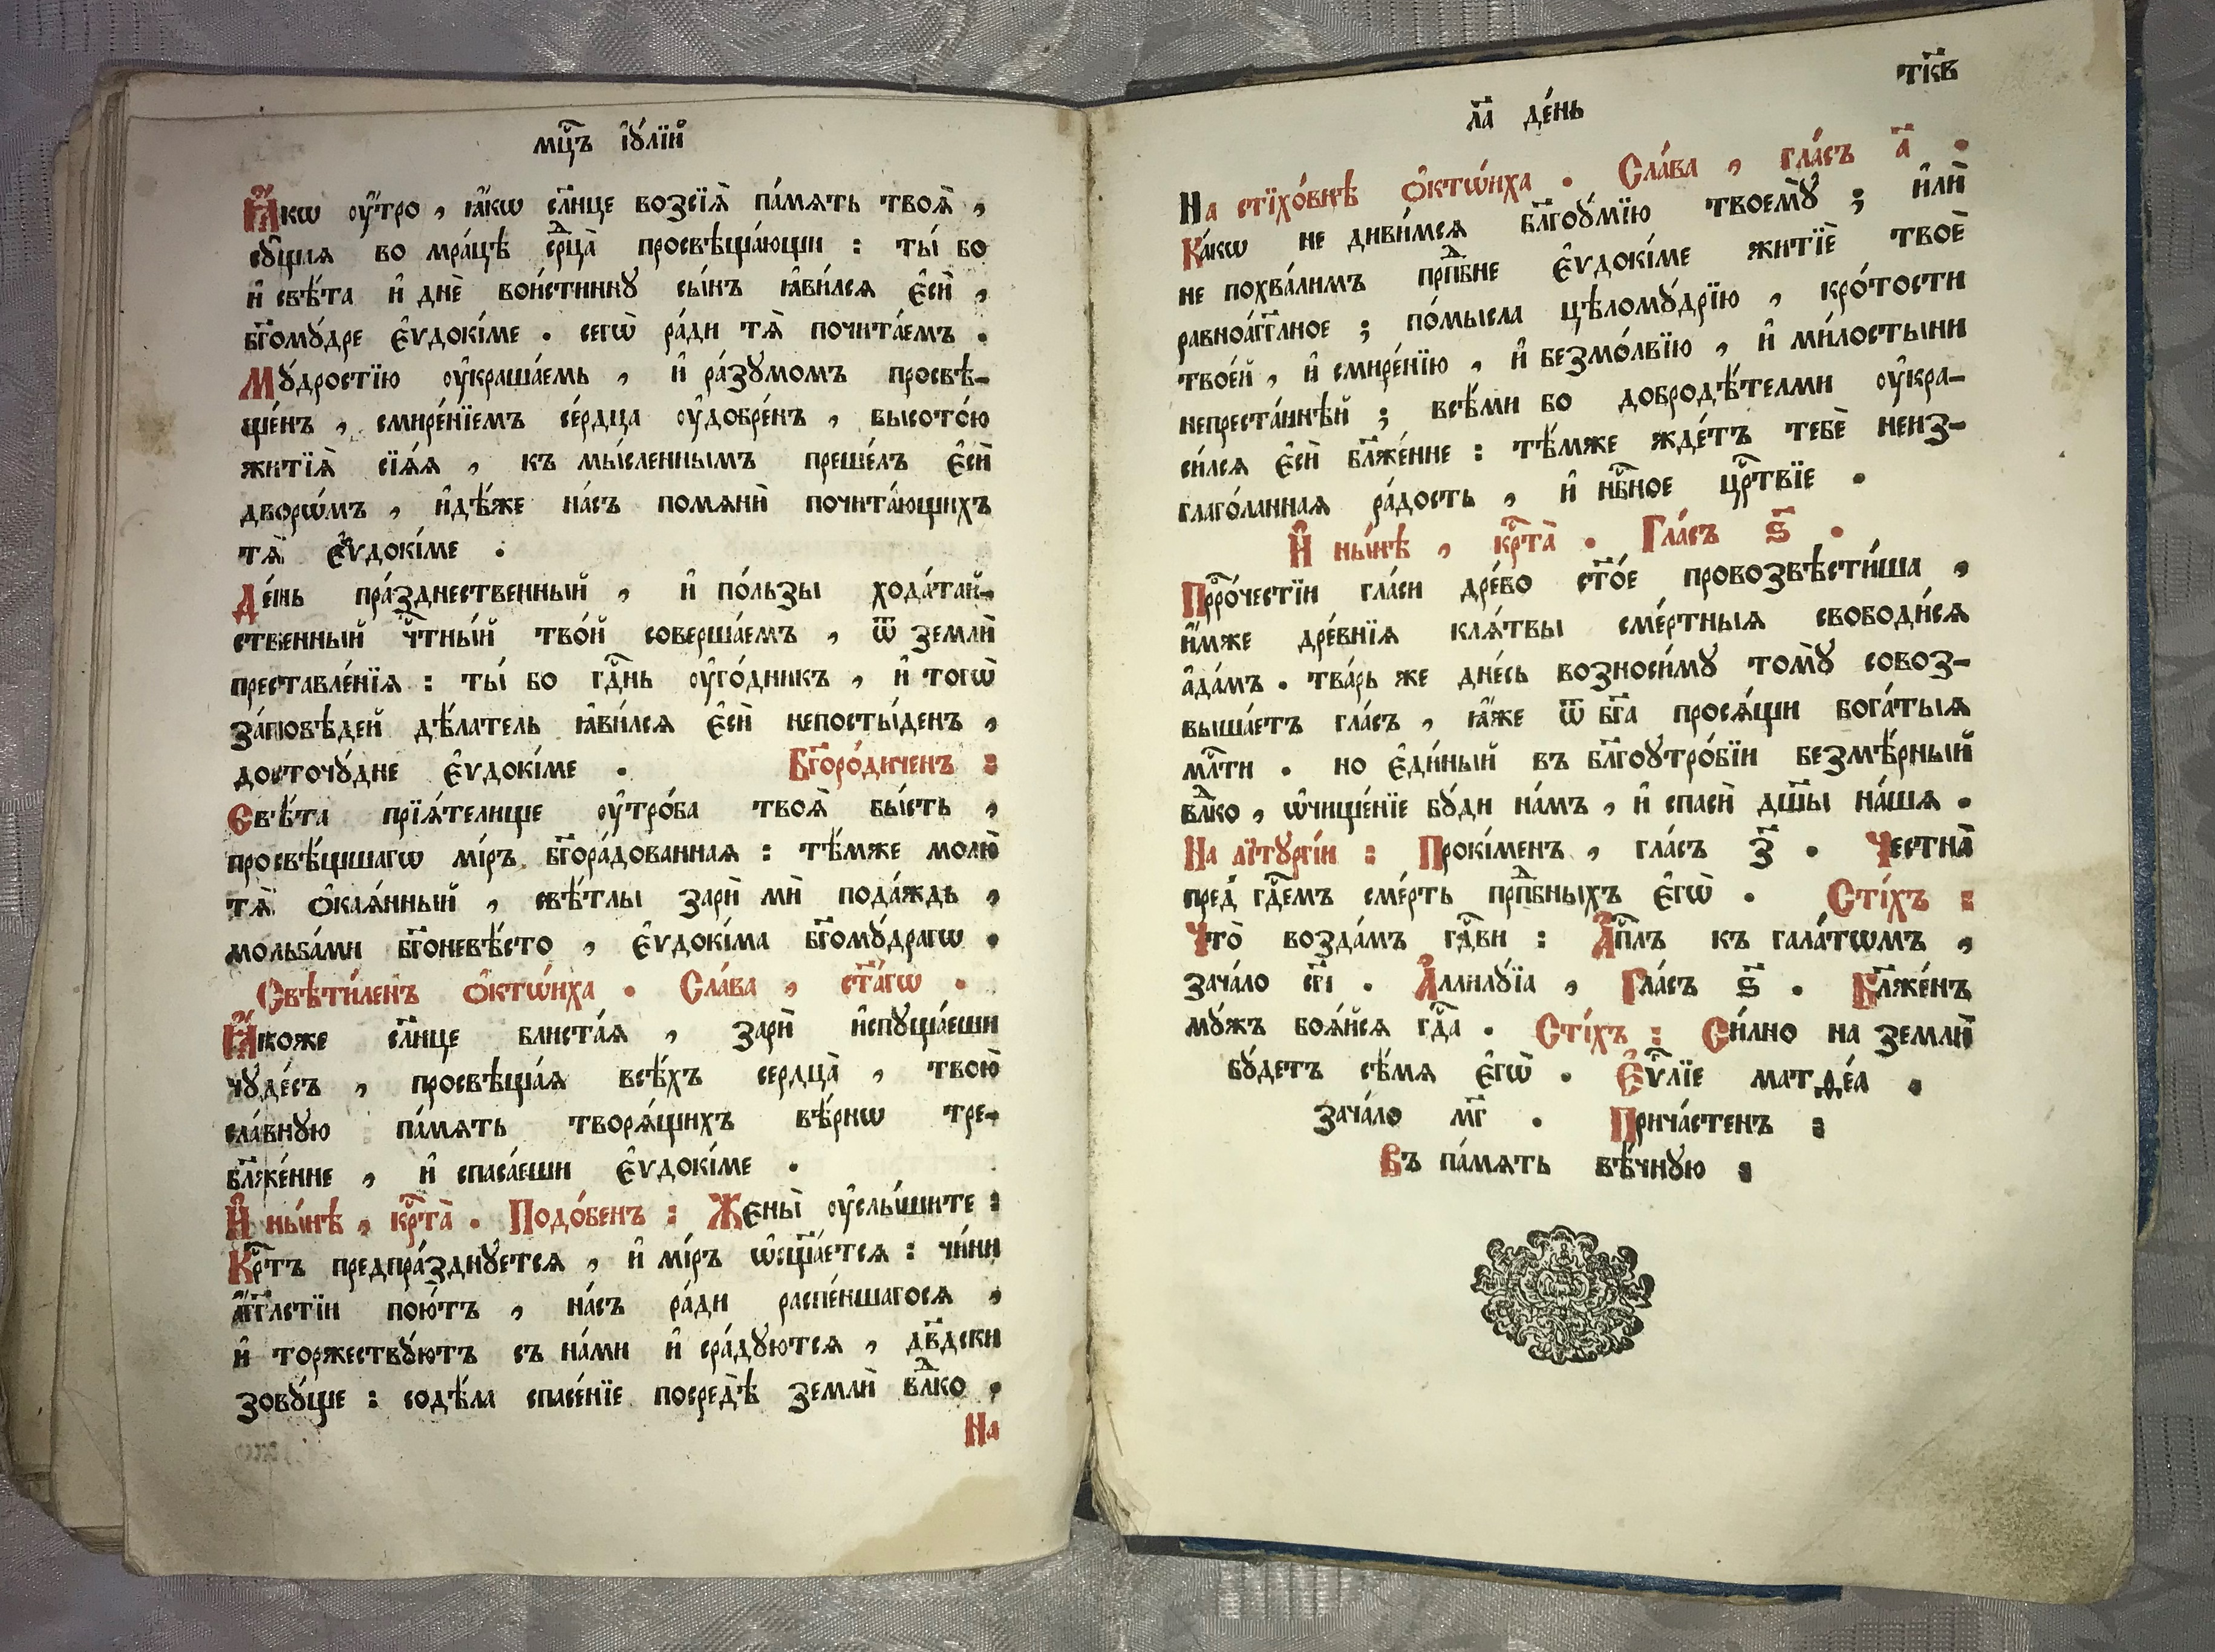 мц҃ъ і҆ꙋ́лїй
Ꙗ҆́кѡ ᲂу҆́тро , ꙗ҆́кѡ сл҃нце возсїѧ̀ па́мѧть твоѧ̀ ,
сꙋ́щыѧ во мра́цѣ срⷣца̀ просвѣща́ющи : ты́ бо
и҆ свѣ́та и҆ днѐ вои́стиннꙋ сы́нъ ꙗ҆ви́лсѧ є҆сѝ ,
бг҃омꙋ́дре є҆ѵдокі́ме . сегѡ̀ ра́ди тѧ̀ почита́емъ .
Мꙋ́дростїю ᲂу҆краша́емь , и҆ ра́зꙋмомъ просвѣ-
ще́нъ , смире́нїемъ се́рдца ᲂу҆добре́нъ , высото́ю
житїѧ̀ сїѧ́ѧ , къ мы́сленнымъ преше́лъ є҆сѝ
дворѡ́мъ , и҆дѣ́же на́съ помѧнѝ почита́ющихъ
тѧ̀ є҆ѵдокі́ме .
Де́нь пра́зднественный , и҆ по́льзы хода́тай-
ственный чⷭ҇тны́й тво́й соверша́емъ , ѿ землѝ
преставле́нїѧ : ты́ бо гдⷭ҇нь ᲂу҆го́дникъ , и҆ тогѡ̀
за́повѣдей дѣ́латель ꙗ҆ви́лсѧ є҆сѝ непосты́денъ ,
досточꙋ́дне є҆ѵдокі́ме . Бг҃оро́диченъ :
Свѣ́та прїѧ́телище ᲂу҆тро́ба твоѧ̀ бы́сть ,
просвѣ́щшагѡ мі́ръ бг҃ора́дованнаѧ : тѣ́мже молю̀
тѧ̀ ѻ҆каѧ́нный , свѣ́тлы зарѝ мѝ пода́ждь ,
мольба́ми бг҃оневѣ́сто , є҆ѵдокі́ма бг҃омꙋ́драгѡ .
Свѣти́ленъ ѻ҆ктѡ́иха . Сла́ва , ст҃а́гѡ .
Ꙗ҆́коже сл҃нце блиста́ѧ , зарѝ и҆спꙋща́еши
чꙋде́съ , просвѣща́ѧ всѣ́хъ сердца̀ , твою̀
сла́внꙋю па́мѧть творѧ́щихъ вѣ́рнѡ тре-
бл҃же́нне , и҆ спаса́еши є҆ѵдокі́ме .
И҆ ны́нѣ , крⷭ҇та̀ . Подо́бенъ : Жены̀ ᲂу҆слы́шите :
Крⷭ҇тъ предпра́зднꙋетсѧ , и҆ мі́ръ ѡ҆сщ҃а́етсѧ : чи́ни
а҆́гг҃лстїи пою́тъ , на́съ ра́ди распе́ншагосѧ ,
и҆ торжествꙋ́ютъ съ на́ми и҆ сра́дꙋютсѧ , дв҃дски
зовꙋ́ще : содѣ́ла спасе́нїе посредѣ̀ землѝ влⷣко .
На
л҃а де́нь
тк҃в
На стїхо́внѣ ѻ҆ктѡ́иха . Сла́ва , гла́съ а҃ .
Ка́кѡ не диви́мсѧ бл҃гоꙋ́мїю твоемꙋ̀ ; и҆лѝ
не похва́лимъ прпⷣбне є҆ѵдокі́ме житїѐ твоѐ
равноа́гг҃лное ; по́мысла цѣломꙋ́дрїю , кро́тости
твое́й , и҆ смире́нїю , и҆ безмо́лвїю , и҆ ми́лостыни
непреста́ннѣй ; всѣ́ми бо добродѣ́телми ᲂу҆кра-
си́лсѧ є҆сѝ бл҃же́нне : тѣ́мже жде́тъ тебѐ неиз-
глаго́ланнаѧ ра́дость , и҆ нбⷭ҇ное црⷭ҇твїе .
И҆ ны́нѣ , крⷭ҇та̀ . Гла́съ ѕ҃ .
Прⷪ҇ро́честїи гла́си дре́во ст҃о́е провозвѣсти́ша ,
и҆́мже дре́внїѧ клѧ́твы сме́ртныѧ свободи́сѧ
а҆да́мъ . тва́рь же дне́сь возноси́мꙋ томꙋ̀ совоз-
выша́етъ гла́съ , ꙗ҆́же ѿ бг҃а просѧ́щи бога́тыѧ
млⷭ҇ти . но є҆ди́ный въ бл҃гоꙋтро́бїи безмѣ́рный
влⷣко , ѡ҆чище́нїе бꙋ́ди на́мъ , и҆ спасѝ дш҃ы на́шѧ .
На лїтꙋргі́и : Прокі́менъ , гла́съ з҃ . Честна̀
пред̾ гдⷭ҇емъ сме́рть прпⷣбныхъ є҆гѡ̀ . Сті́хъ :
Что̀ возда́мъ гдⷭ҇ви : А҆пⷭ҇лъ къ гала́тѡмъ ,
зача́ло сг҃і . А҆ллилꙋ́їа , Гла́съ ѕ҃ . Бл҃же́нъ
мꙋ́жъ боѧ́йсѧ гдⷭ҇а . Сті́хъ : Си́лно на землѝ
бꙋ́детъ сѣ́мѧ є҆гѡ̀ . Є҆ѵⷢ҇лїе матѳе́а .
зача́ло мг҃ . Прича́стенъ :
Въ па́мѧть вѣ́чнꙋю :